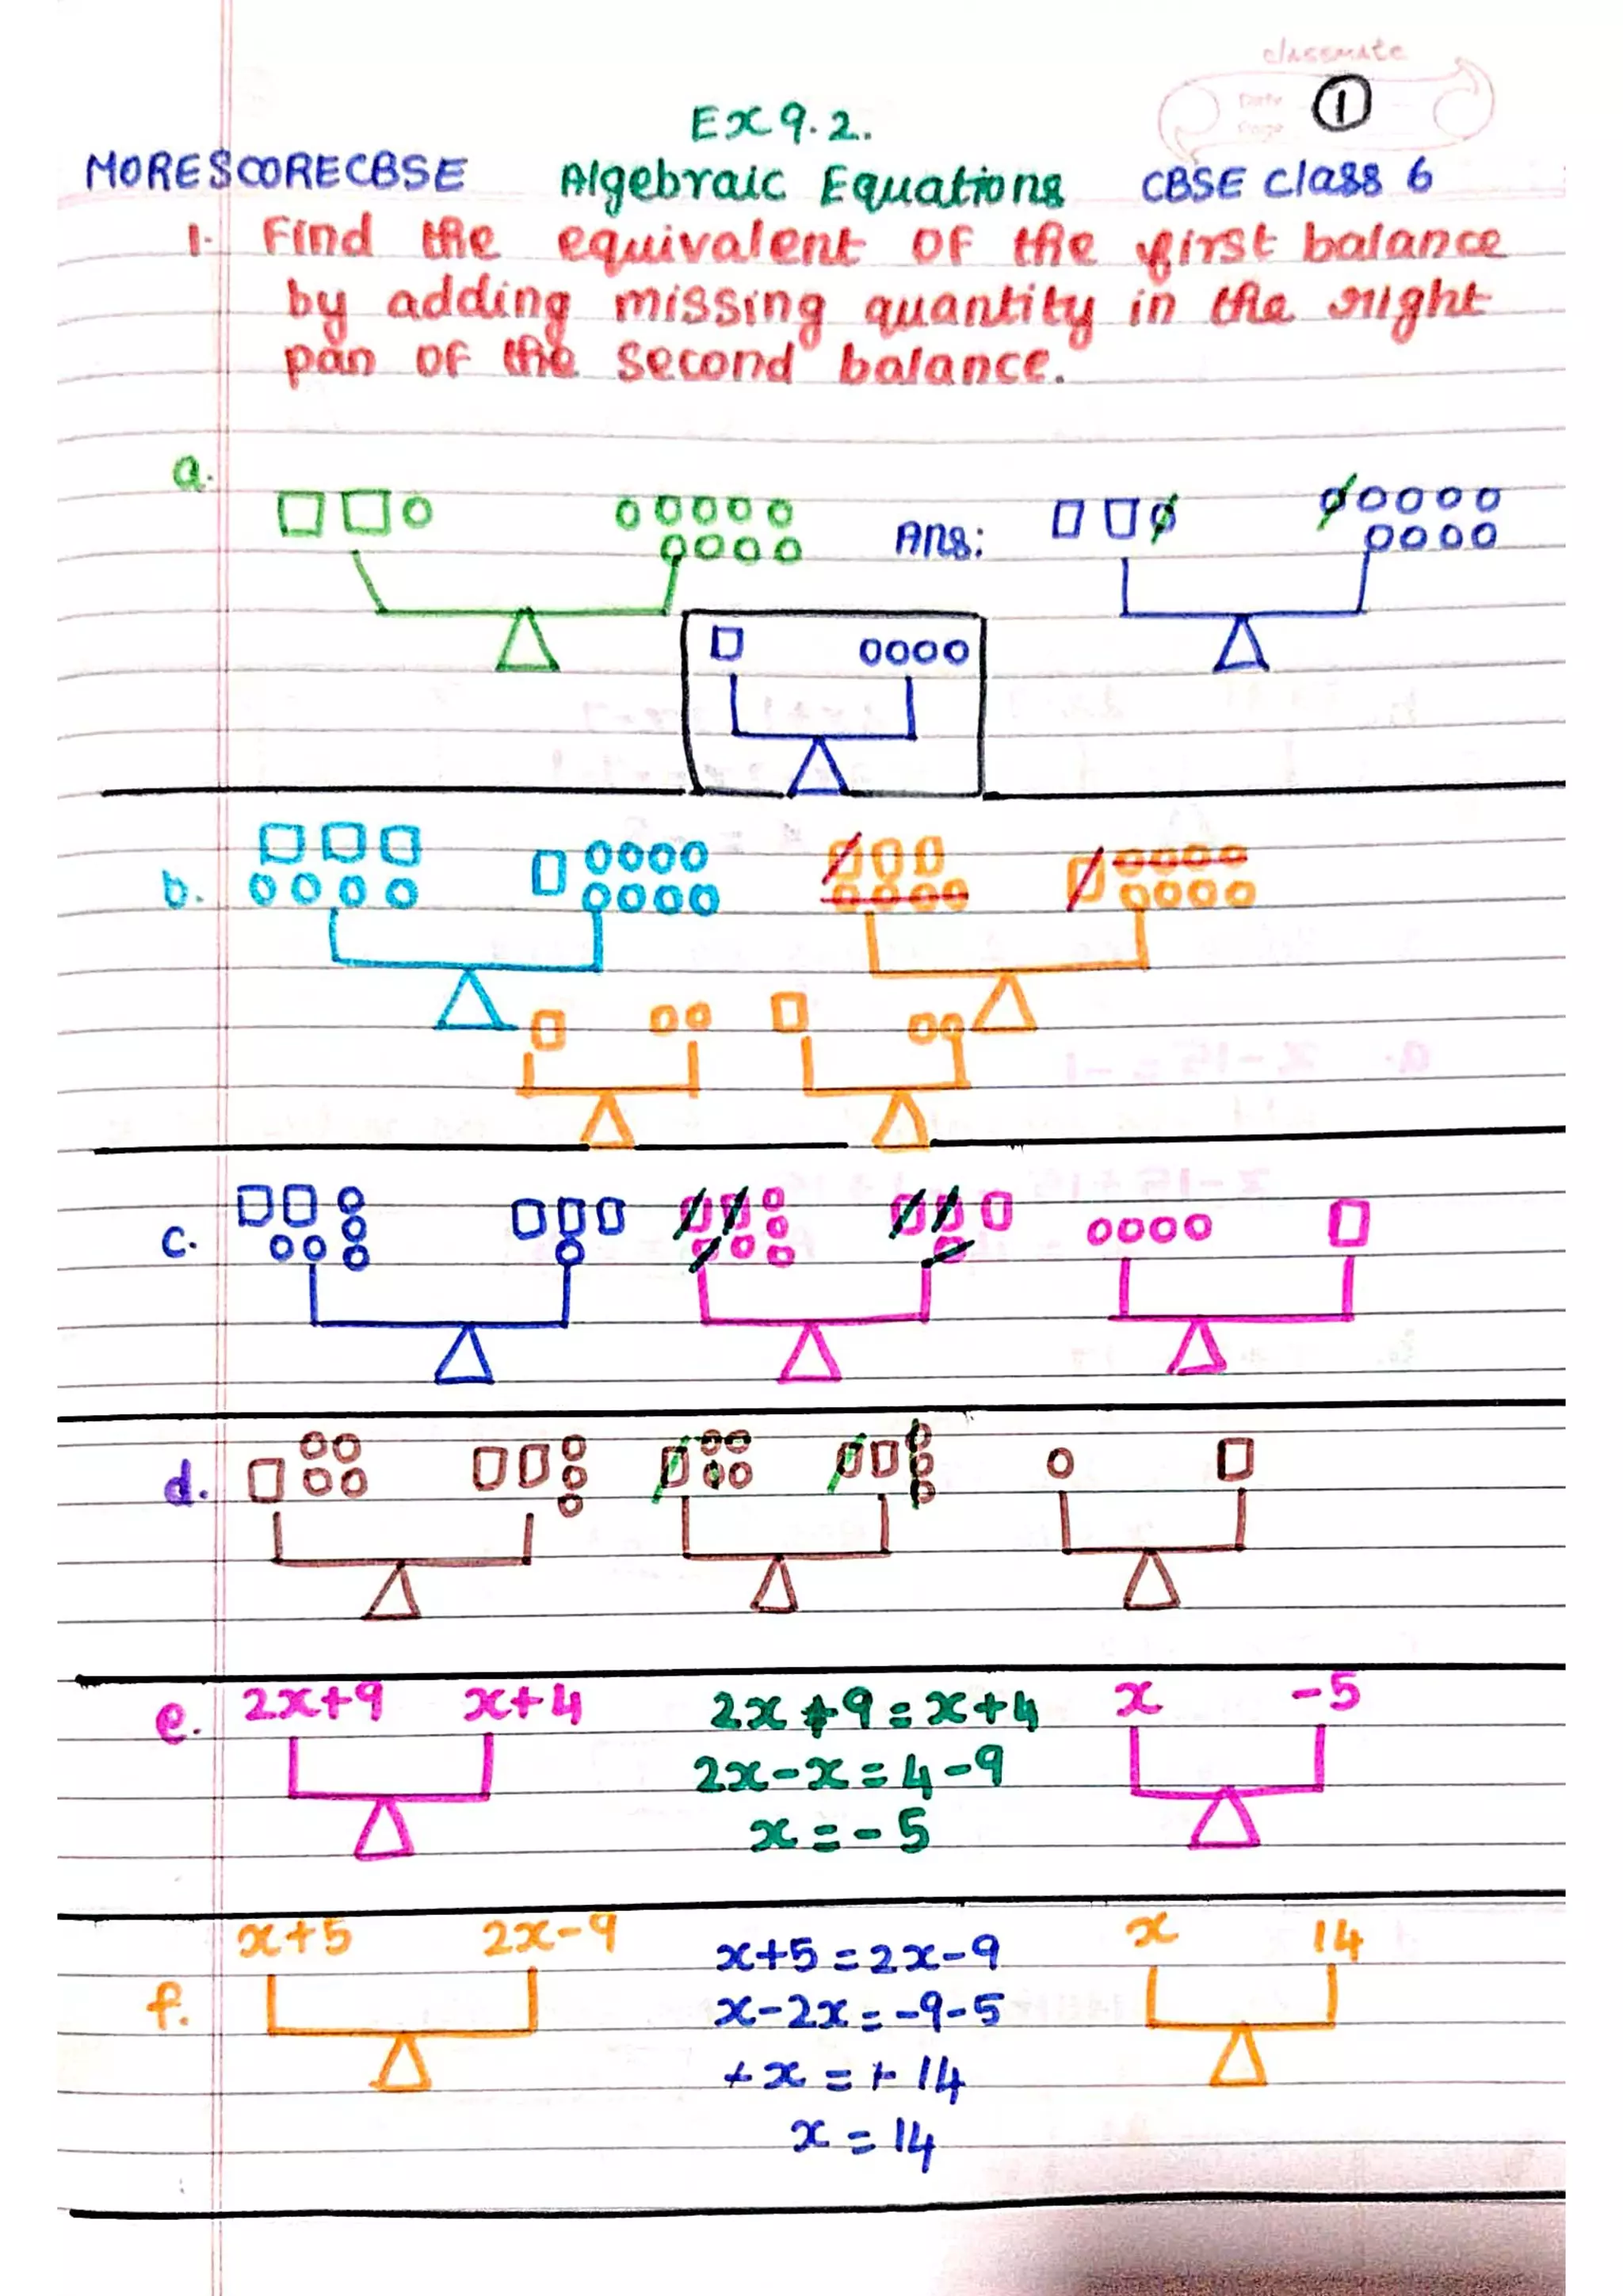 classmate
Date
Page
1
Ex 9.2.
MORESCORECBSE Algebraic Equations CBSE Class 6
1. Find the equivalent of the first balance
by adding missing quantity in the right
pan of the second balance.
a.
Ans:
b.
c.
d.
e. 2x+9 x+4 2x+9=x+4 x -5
2x-x=4-9
x=-5
f. x+5 2x-9 x+5=2x-9 x 14
x-2x=-9-5
+x=+14
x=14